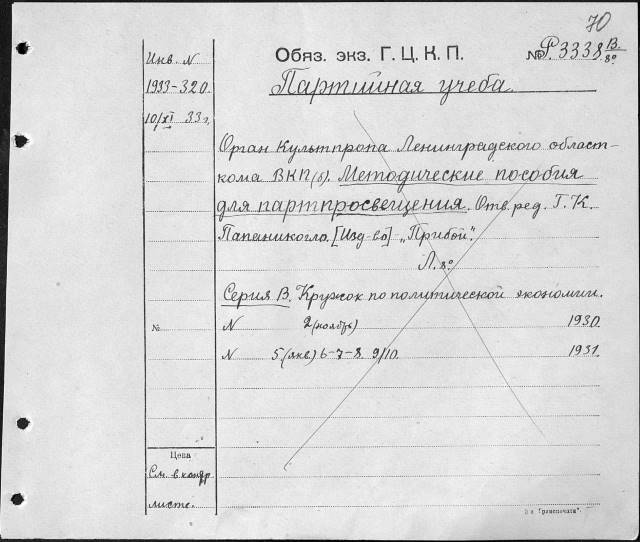 70
Обяз. экз. Г. Ц. К. П.
№ Р. 3338 В. 8º
Инв. N
1933-320
10/XI 33 г,
Партийная учеба.
Орган Культпропа Ленинградского област-
кома ВКП(б). Методические пособия
для партпросвещения. Отв. ред. Г. К.
Папаникогло. [Изд-во] „Прибой".
Л. 8º
Серия В. Кружок по политической экономии.
№ N 2 (ноябрь) 1930.
N 5 (янв) 6-7-8. 9/10. 1931.
Цена
См. в контр
листе.